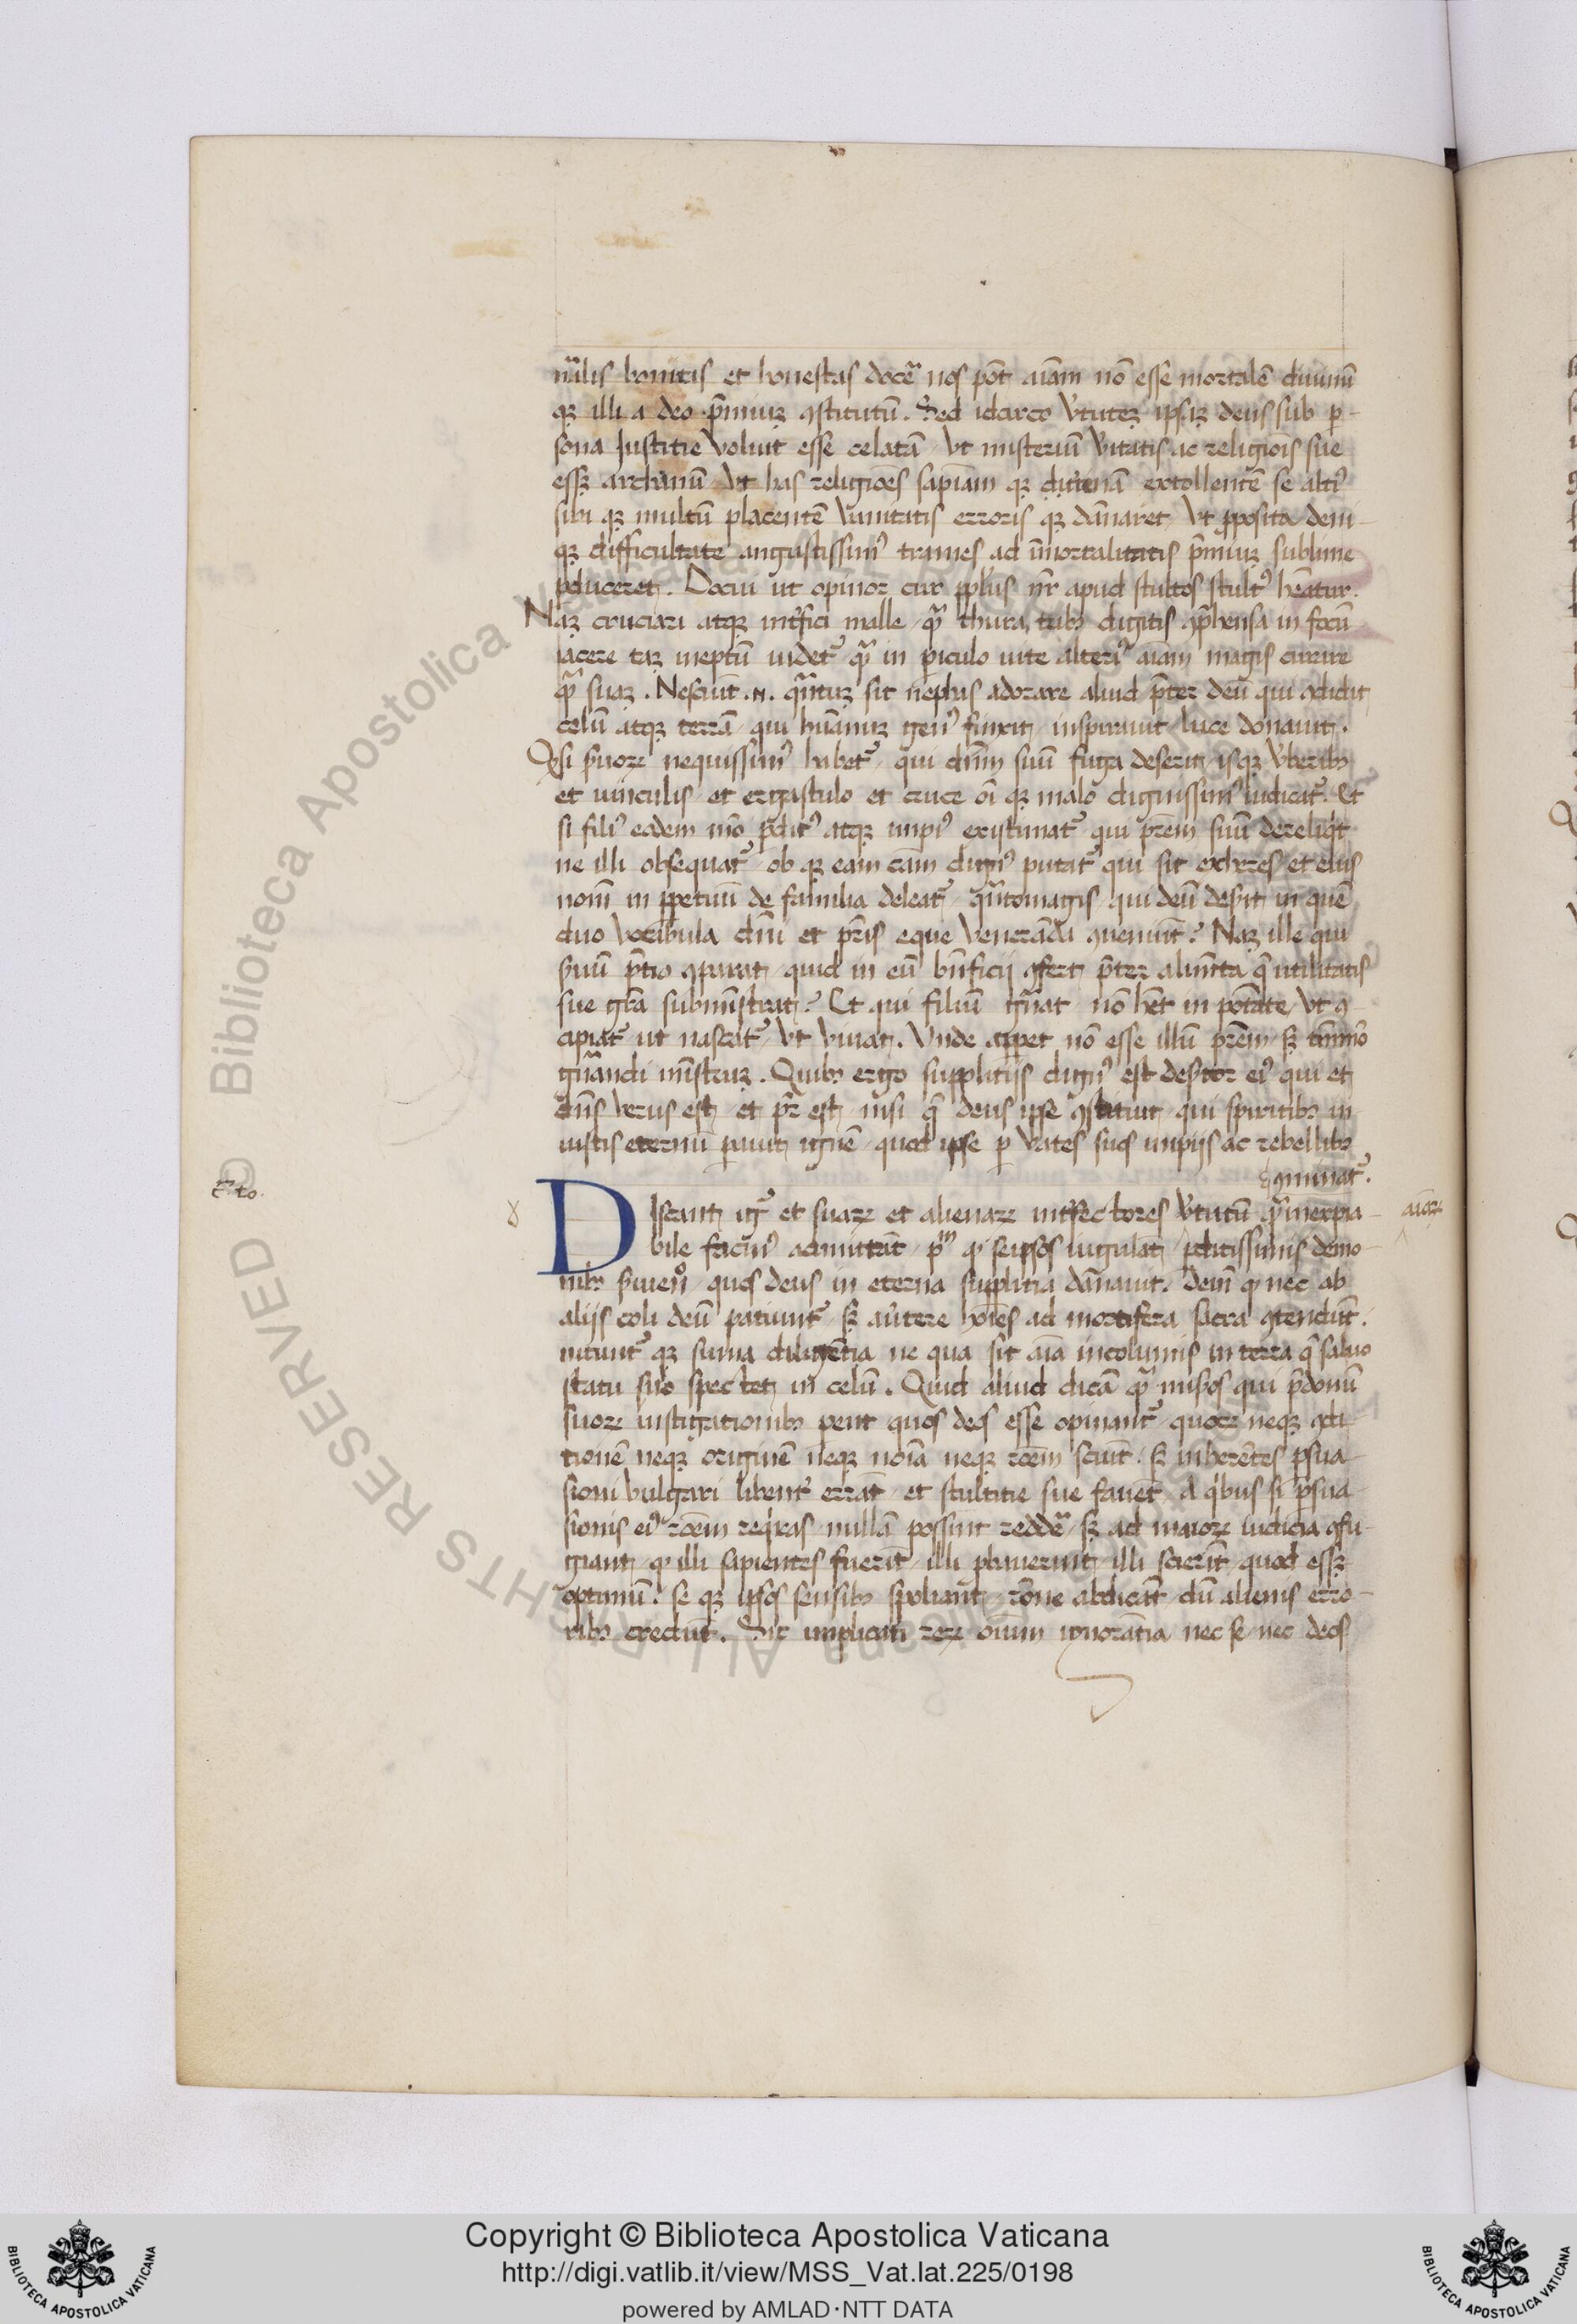 nr̄alis bonitas et honestas docer̄ nos pōt aīam nō esse mortalē diuinū
qꝫ illi a deo p̄miuꝫ ꝯstitutū. Sed idcirco v̓tuteꝫ ipsaꝫ deus sub ꝑ-
sona Iustitie voluit esse celatā / vt misteriū v̓itatis ac religiōis sue
essꝫ archanū / vt has religiōes sapīam qꝫ diuinā extollentē se altiꝰ
sibi qꝫ multū placentē vanitatis erroris qꝫ dānaret / vt ꝓposita deni-
qꝫ difficultate angustissimꝰ trames ad īmortalitatis p̄miuꝫ sublime
ꝑduceret. Docui ut opinor cur pplūs nr̄ apud stultos stultꝰ heātur.
Naꝫ cruciari atqꝫ int̓fici malle / qꝫ̄ thura tribꝰ digitis ꝯp̄hensa in focū
iacere taꝫ ineptū uidet᷑ qꝫ̄ in ꝑiculo uite alteriꝰ aīam magis curare
qꝫ̄ suaꝫ. Nesciūt .n. qꝫ̄tuꝫ sit nephas adorare aliud p̄ter deū qui ꝯdidit
celū atqꝫ terrā / qui humanuꝫ genꝰ finxit / inspirauit / luce donauit.
Qsi s̓uorꝝ nequissimꝰ habet᷑ / qui dn̄m suū fuga deserit / isqꝫ v̓beribꝰ
et uinculis / et ergastulo et cruce oī qꝫ malo dignissimꝰ iudicat᷑. Et
si filiꝰ eadem mō ꝑditꝰ atqꝫ impiꝰ existimat᷑ qui prēm suū dereliqt
ne illi obsequat᷑ / ob qꝫ eam cām dignꝰ putat᷑ qui sit exheres / et eius
nom̄ in ꝑpetuū de familia deleat᷑ / qꝫ̄tomagis qui deū des̓it in quē
duo vocabula dn̄i et pr̄is eque veneranda ꝯueniūt? Naꝫ ille qui
s̓uū p̄tio ꝯparat / quid in eū bn̄ficij ꝯfert p̄ter alimēta q̄ utilitatis
sue gr̄a subministrat? Et qui filium gn̄at nō hēt in potāte / vt ꝯ-
cipiat᷑ ut nascat᷑ / vt viuat. Vnde appet nō esse illū prēm / sꝫ tm̄mō
gn̄andi ministruꝫ. Quibꝰ ergo supplitijs dignꝰ est des̓tor eiꝰ qui et
dn̄s verus est / et pr̄ est / nisi q̄ deus ipse ꝯstituit / qui spiritibꝰ in
iustis eternū parauit ignē / quod ipse ꝑ vates suos impijs ac rebellibꝰ
ꝯminat᷑.
Discant igr̄ et suarꝝ et alienarꝝ int̓fectores v̓tutū qꝫ̄ inexpia- aīarꝝ
bile facinꝰ admittāt / pm̄ qꝫ seipsos iugulāt / ꝑditissimis demo-
nibꝰ s̓uiendo / quos deus in eterna supplitia dānauit. Dein̄ ꝙ nec ab
alijs coli deū patiunt᷑ / sꝫ au̓tere hoīes ad mortifera sacra ꝯtendūt.
nitunt᷑ qꝫ suma diligētia ne qua sit aīa incolumis in terra q̄ saluo
statu suo spectet in celū. Quid aliud dicā qꝫ̄ mis̓os qui p̄donū
suorꝝ instigationibꝰ ꝑent quos deos esse opinant᷑ / quorꝝ neqꝫ ꝯdi-
tionē neqꝫ originē neqꝫ noīa neqꝫ rōem sciūt. sꝫ inherētes ꝑsua-
sioni vulgari libent̓ errāt / et stultitie sue fauēt. A qbus si ꝑsua-
sionis eiꝰ rōem reqras / nullā possint redder̄ / sꝫ ad maiorꝝ iudicia ꝯfu-
giant / ꝙ illi sapientes fuerīt / illi ꝓbauerunt / illi scierīt quod essꝫ
optimū. se qꝫ ipsos sensibꝰ spoliant / rōne abdicāt / dū alienis erro-
ribꝰ credūt. Sic implicati rerꝝ oīum ignorātia nec se / nec deos